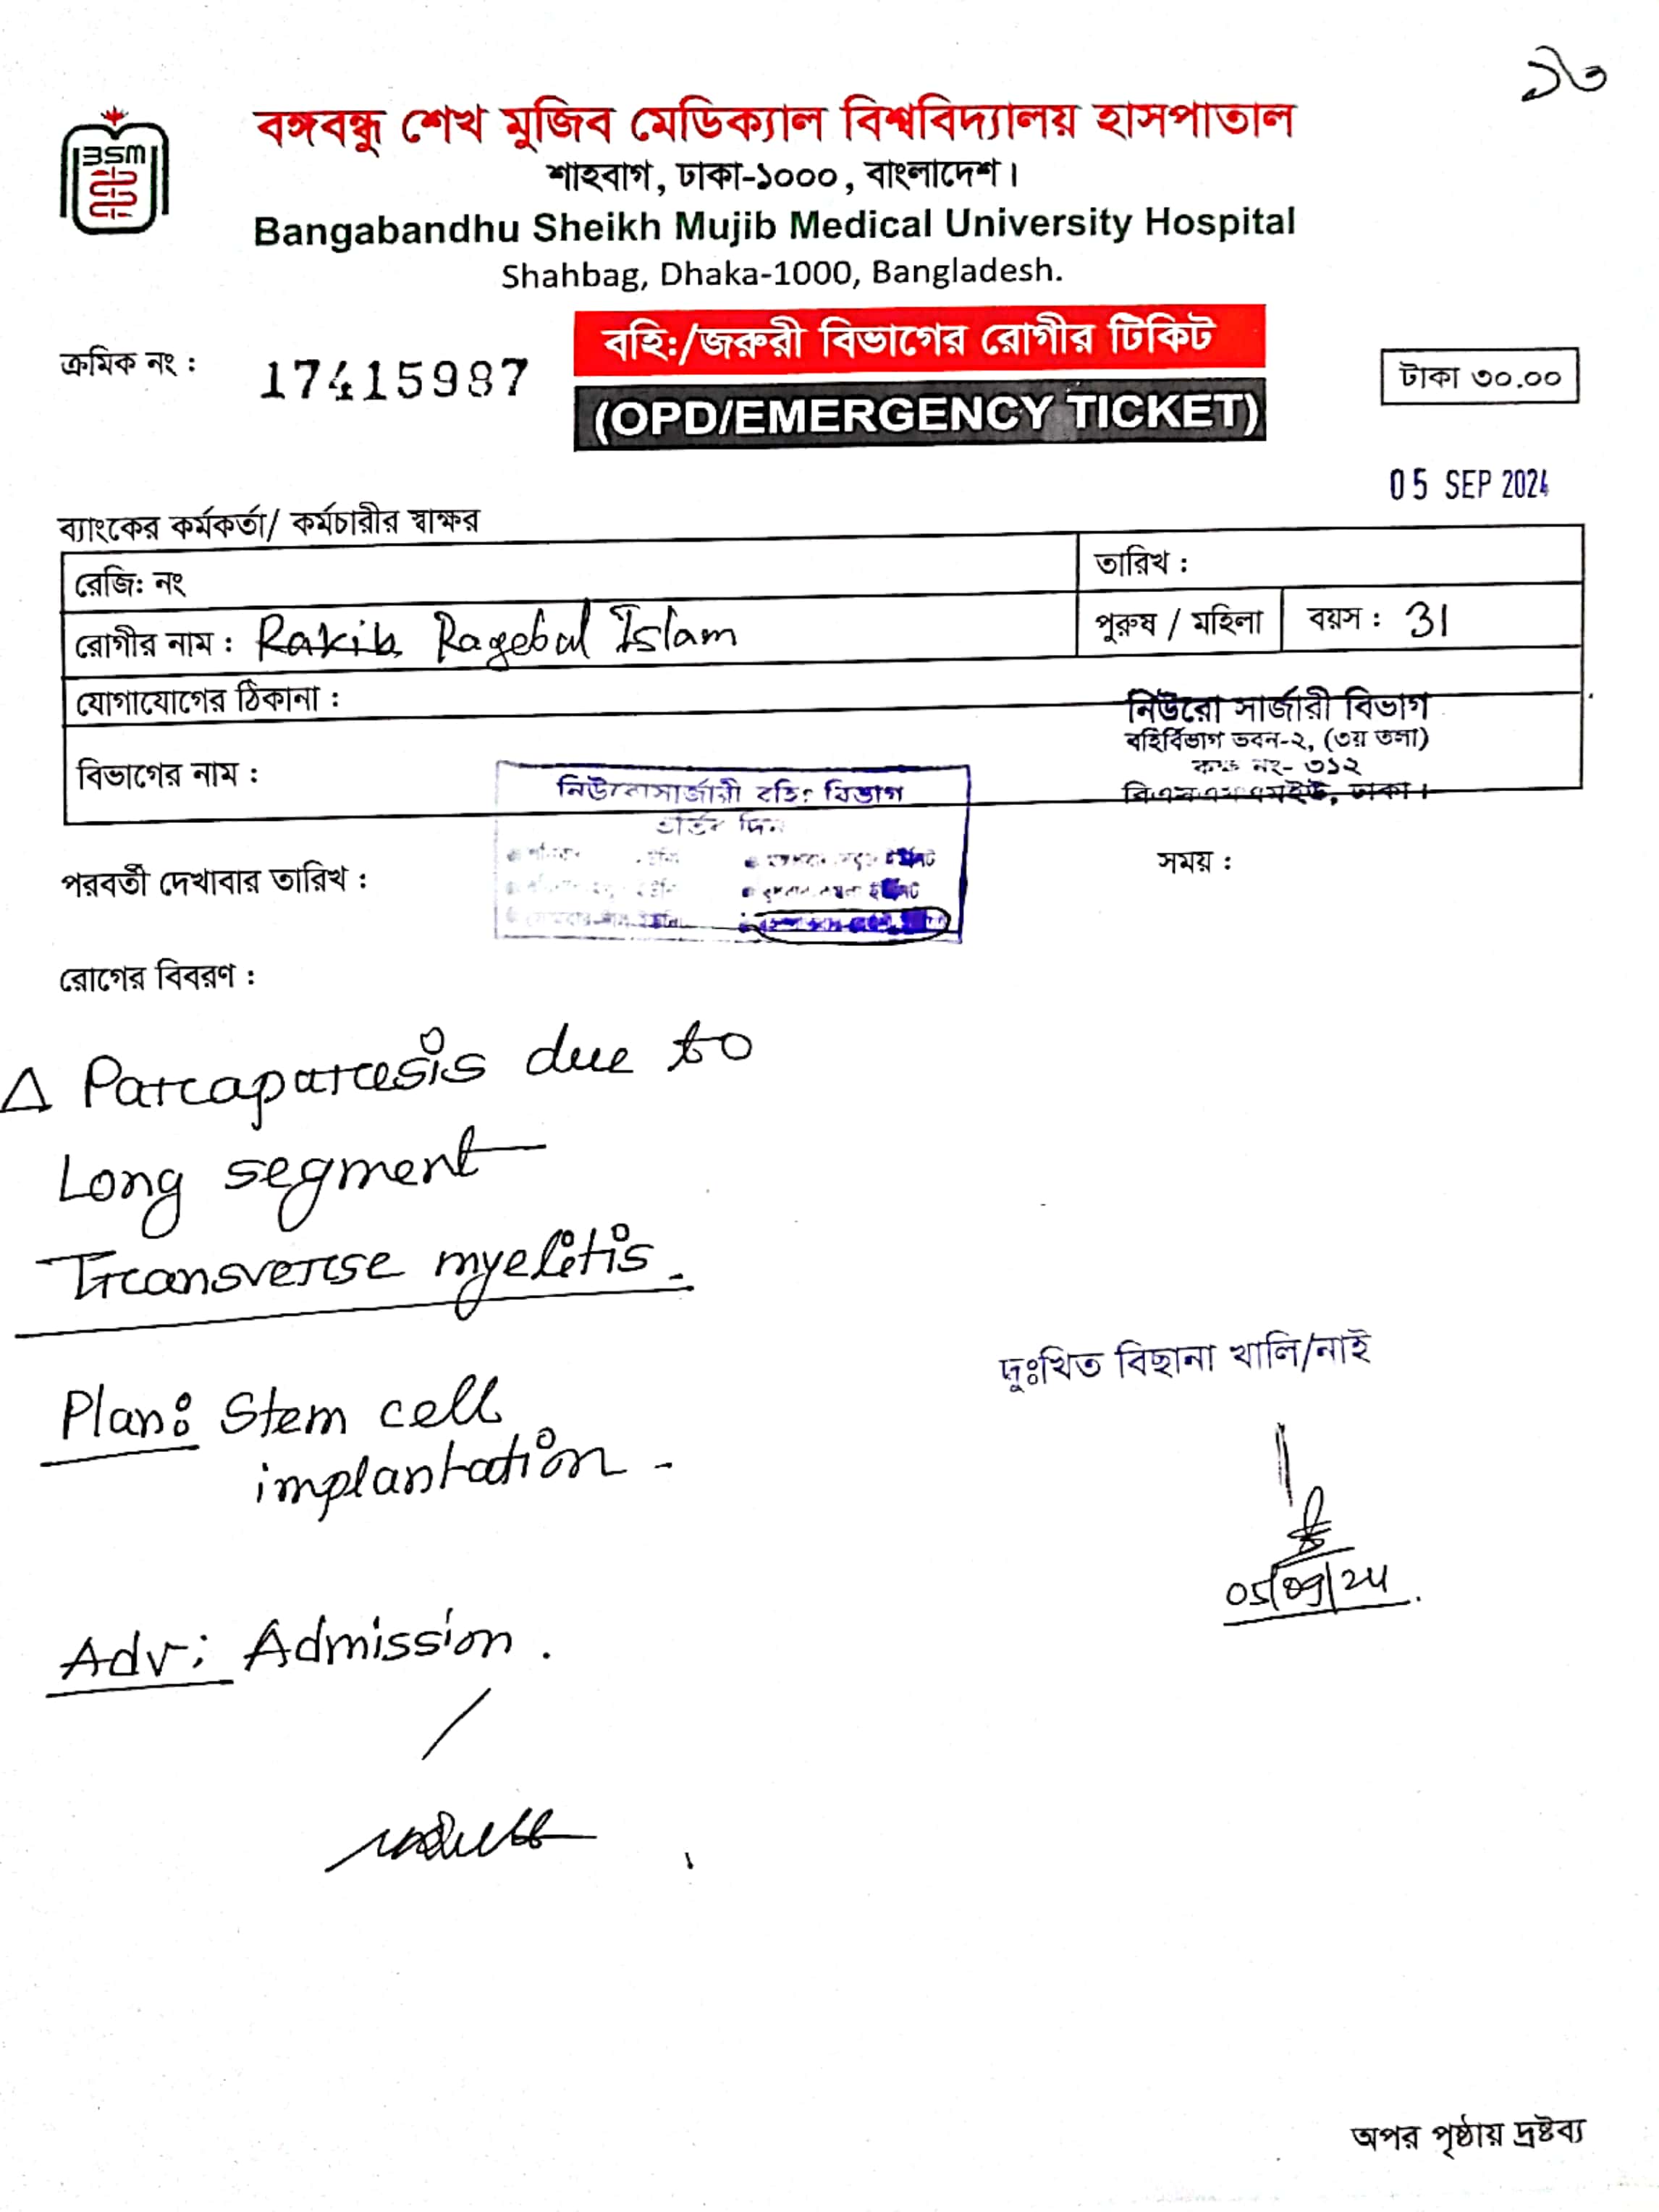 ১৩
BSM
বঙ্গবন্ধু শেখ মুজিব মেডিক্যাল বিশ্ববিদ্যালয় হাসপাতাল
শাহবাগ, ঢাকা-১০০০, বাংলাদেশ।
Bangabandhu Sheikh Mujib Medical University Hospital
Shahbag, Dhaka-1000, Bangladesh.
ক্রমিক নং : 17415987
বহি:/জরুরী বিভাগের রোগীর টিকিট
(OPD/EMERGENCY TICKET)
টাকা ৩০.০০
05 SEP 2024
ব্যাংকের কর্মকর্তা/ কর্মচারীর স্বাক্ষর
রেজি: নং
তারিখ :
রোগীর নাম : Rakib Ragebul Islam
পুরুষ / মহিলা বয়স : 31
যোগাযোগের ঠিকানা :
নিউরো সার্জারী বিভাগ
বহির্বিভাগ ভবন-২, (৩য় তলা)
কক্ষ নং- ৩১২
বিএসএমএমইউ, ঢাকা।
বিভাগের নাম :
নিউরোসার্জারী বহিঃ বিভাগ
ভর্তির দিন
পরবর্তী দেখাবার তারিখ :
সময় :
রোগের বিবরণ :
Δ Paraparesis due to
Long segment
Transverse myelitis.
Plan: Stem cell
implantation -
দুঃখিত বিছানা খালি/নাই
05/09/24
Adv: Admission.
অপর পৃষ্ঠায় দ্রষ্টব্য